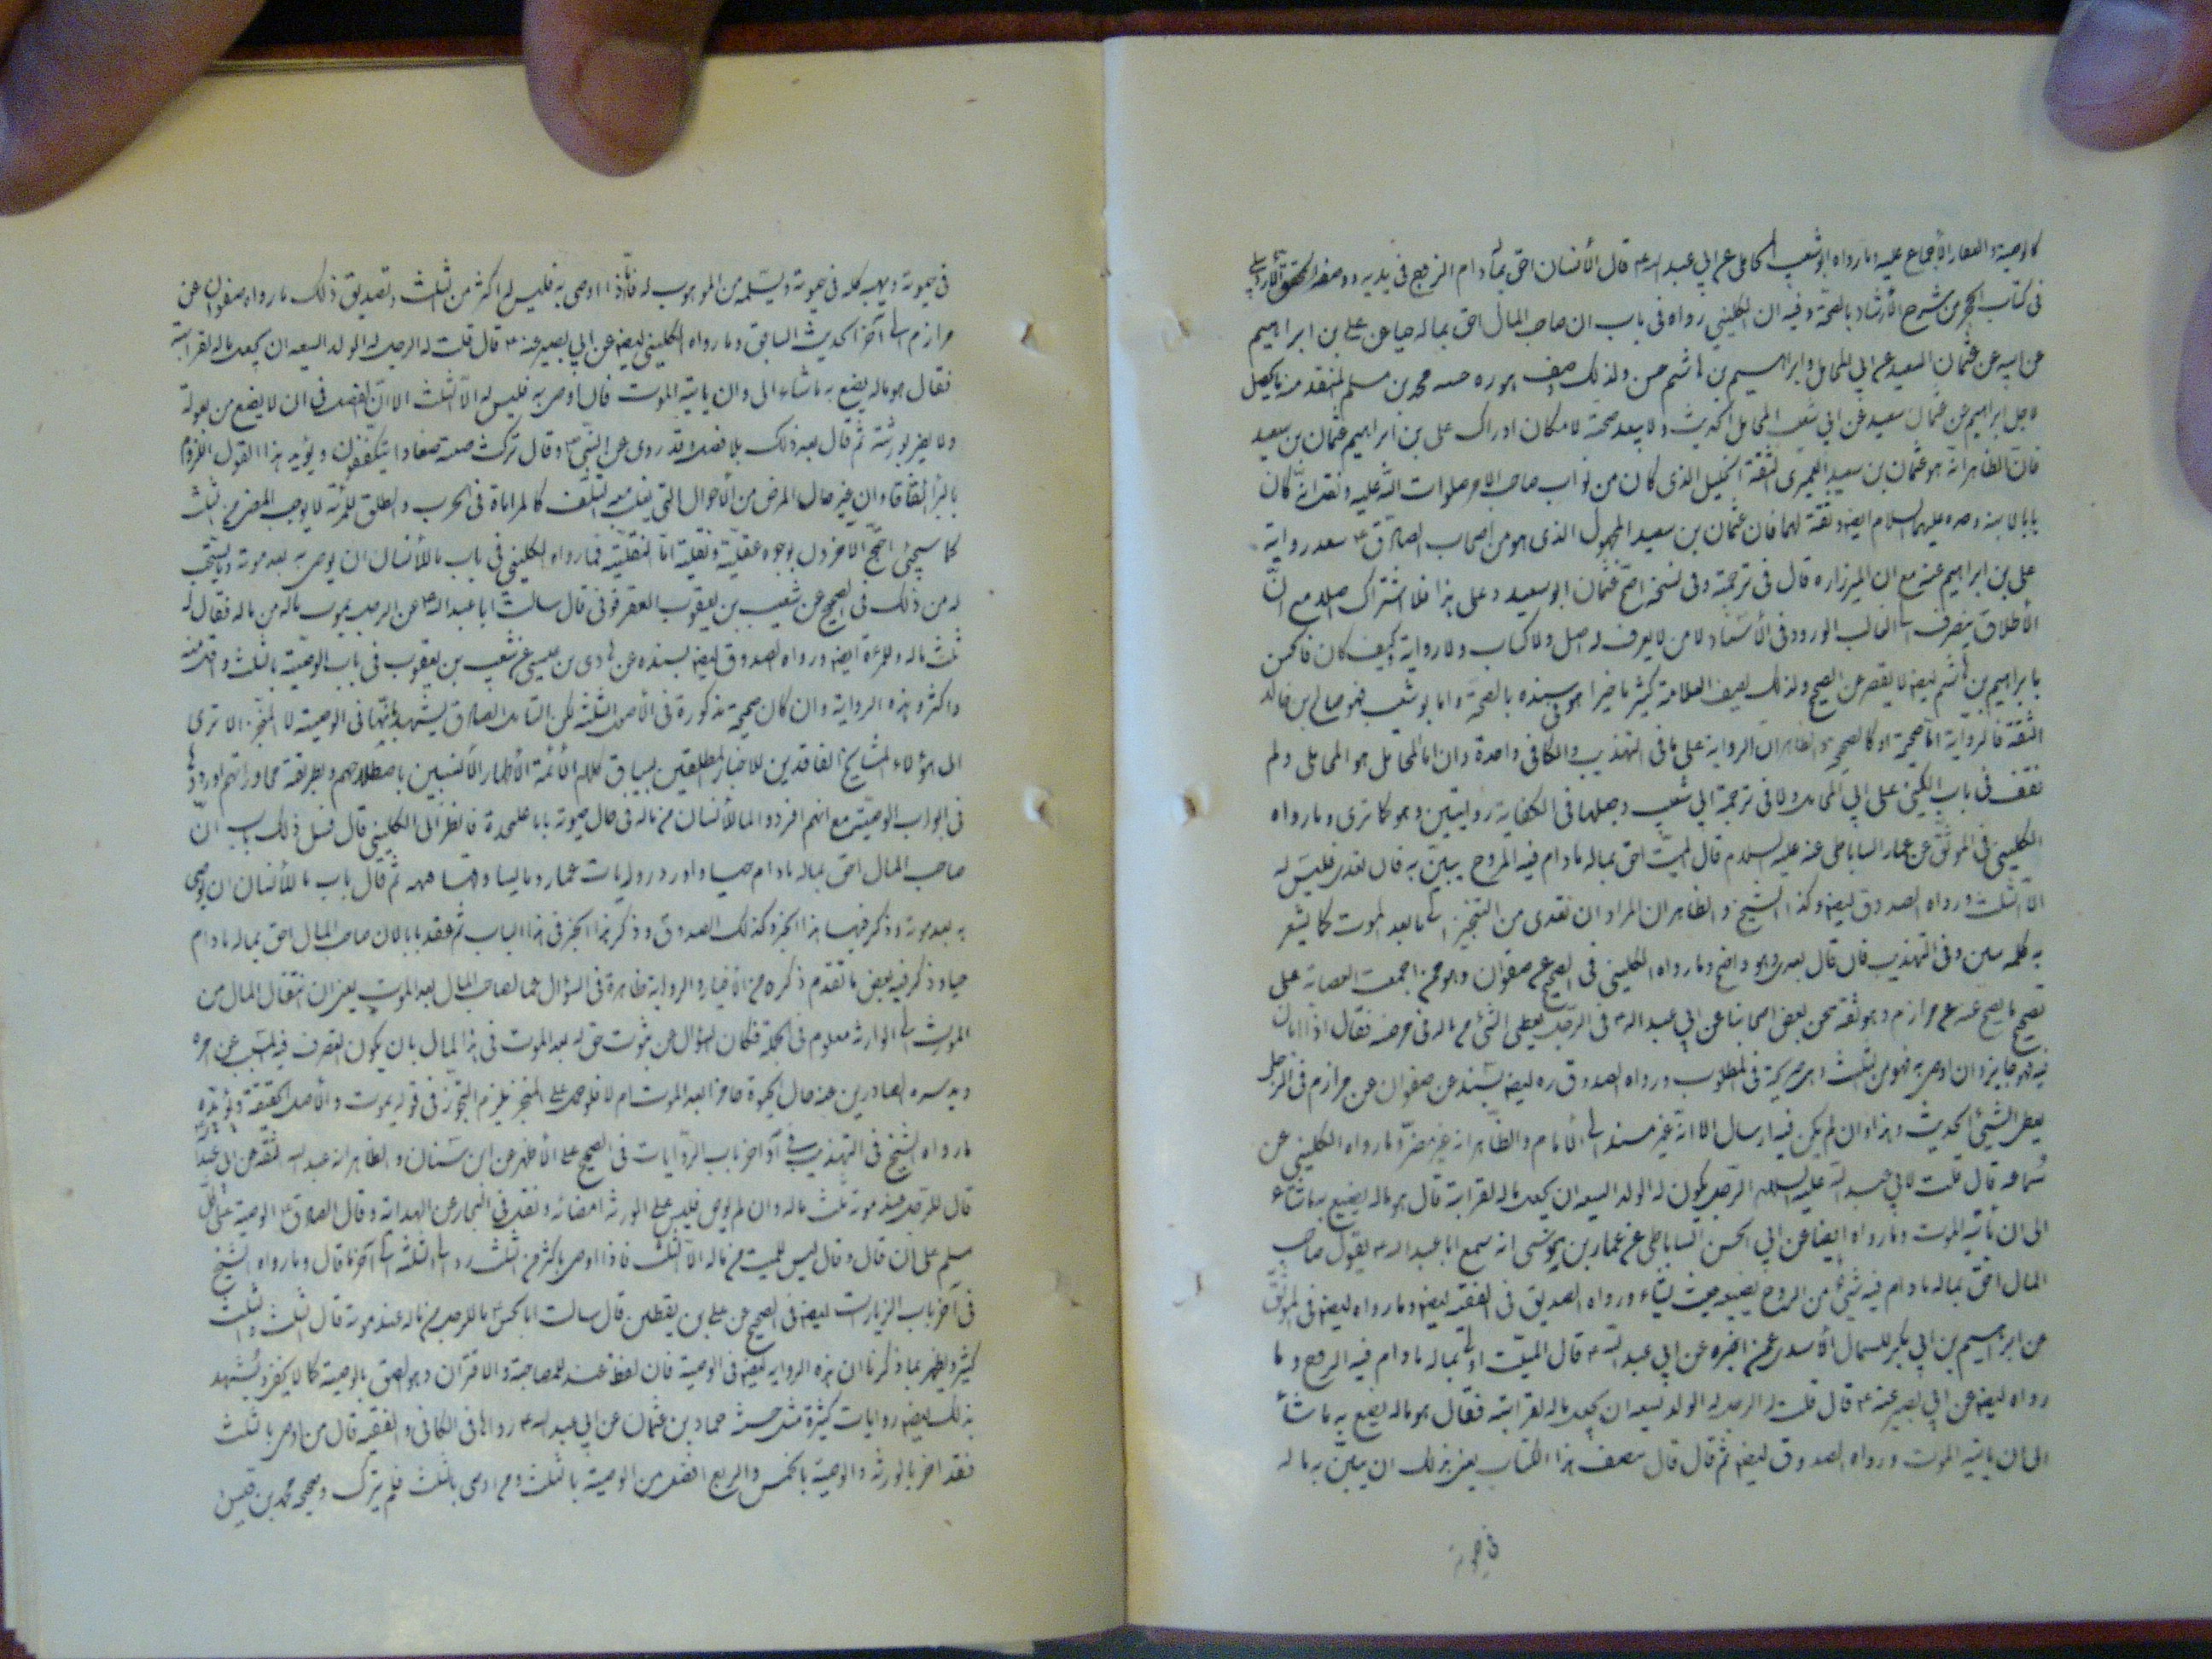 كالوصية والعقار الأجماع عليه ما رواه ابو شعيب المحاملى عن ابي عبد الله ع قال الأنسان احق بماله ما دام الروح فى بدنه
فى كتاب الحجر من شرح الأرشاد بالصحة وفيه ان الكليني رواه فى باب ان صاحب المال احق بماله حيا عن على بن ابراهيم
عن ابيه عن عثمان بن سعيد عن ابي المحامل وابراهيم بن هاشم حسن ولذلك محمد بن مسلم
ابراهيم عن عثمان سعيد عن ابي شعيب المحاملى الحديث ولا يبعد صحته لامكان ادراك على بن ابراهيم عثمان بن سعيد
فان الظاهر انه هو عثمان بن سعيد العميرى الثقة الجليل الذى كان من نواب صاحب الامر صلوات الله عليه ونقل انه كان
بابا لابنه وجده عليهما السلام ايضا وثقة لهما فان عثمان بن سعيد المجهول الذى هو من اصحاب الصادق ع يبعد رواية
على بن ابراهيم عنه مع ان الميرزا ره قال فى ترجمته وفى نسخة اصح عثمان ابو سعيد وعلى هذا فلا اشتراك اصلا مع ان
الأطلاق ينصرف الى الغالب الورود فى الأسناد لا من لا يعرف له اصل ولا كتاب ولا رواية وكيف كان فالحسن
بابراهيم بن هاشم ايضا لا يقصر عن الصحيح ولذلك يصف العلامة كثيرا ما خبرا هو فى سنده بالصحة واما ابو شعيب فهو صالح بن خالد
الثقة فالرواية اما صحيحة او كالصحيحة والظاهر ان الرواية على ما فى التهذيب والكافى واحدة وان ابا المحامل هو المحاملى ولم
نقف فى باب الكنى على ابي المحامد ولا فى ترجمة ابي شعيب وجعلها فى الكفاية روايتين وهو كما ترى وما رواه
الكليني فى الموثق عن عمار الساباطى عنه عليه السلام قال الميت احق بماله ما دام فيه الروح يبين به فان تعدى فليس له
الا الثلث ورواه الصدوق ايضا وكذا الشيخ والظاهر ان المراد ان تعدى من التنجيز الى ما بعد الموت كما يشعر
به كلمه يبين وفى التهذيب فان قال بعدى وهو واضح وما رواه الكليني فى الصحيح عن صفوان وهو ممن اجمعت العصابة على
تصحيح ما يصح عنه عن مرازم وهو ثقة عن بعض اصحابنا عن ابي عبد الله ع فى الرجل يعطى الشئ من ماله فى مرضه فقال اذا ابان
فيه فهو جايز وان اوصى به فهو من الثلث وهى صريحة فى المطلوب ورواه الصدوق ره ايضا بسنده عن صفوان عن مرازم فى الرجل
يعطى الشئ الحديث وهذا وان لم يكن فيه ارسال الا انه غير مسند الى الأمام والظاهر انه غير مضر وما رواه الكليني عن
سماعه قال قلت لابي عبد الله عليه السلام الرجل يكون له الولد ايسعه ان يجعل ماله لقرابته قال هو ماله يصنع به ما شاء
الى ان يأتيه الموت وما رواه ايضا عن ابي الحسن الساباطى عن عمار بن موسى انه سمع ابا عبد الله ع يقول صاحب
المال احق بماله ما دام فيه شئ من الروح يضعه حيث يشاء ورواه الصدوق فى الفقيه ايضا وما رواه ايضا فى الموثق
عن ابراهيم بن ابي بكر السمال الأسدى عمن اخبره عن ابي عبد الله ع قال الميت اولى بماله ما دام فيه الروح وما
رواه ايضا عن ابي بصير عنه ع قال قلت له الرجل له الولد ايسعه ان يجعل ماله لقرابته فقال هو ماله يصنع به ما شاء
الى ان ياتيه الموت ورواه الصدوق ايضا ثم قال قال مصنف هذا الكتاب يعنى بذلك ان يبين به ماله
فى حيوته
فى حيوته ويهبه كله فى حيوته ويسلمه من الموهوب له فأذا اوصى به فليس له اكثر من الثلث وتصديق ذلك ما رواه صفوان عن
مرازم الى آخر الحديث السابق وما رواه الكليني ايضا عن ابي بصير عنه ع قال قلت له الرجل له الولد ايسعه ان يجعل ماله لقرابته
فقال هو ماله يصنع به ما شاء الى ان ياتيه الموت فان اوصى به فليس له الا الثلث الا ان الفضل فى ان لا يضيع من يعوله
ولا يضر بورثته ثم قال بعد ذلك بلا فصل وقد روى عن النبي ص وقال ترك صبية صغارا يتكففون ويؤيد هذا القول
ان غير حال المرض من الأحوال التى يغلب معه التلف كالمراماة فى الحرب والطلق للمرأة لا يوجب المضى من الثلث
كما سيجئ احتج الآخرون بوجوه عقلية ونقلية اما النقلية فما رواه الكليني فى باب ما للأنسان ان يوصى به بعد موته وما يستحب
له من ذلك فى الصحيح عن شعيب بن يعقوب العقرقوفى قال سالت ابا عبد الله ع عن الرجل يموت ماله من ماله فقال له
ثلث ماله وللمرءة ايضا ورواه الصدوق ايضا بسنده عن حماد بن عيسى عن شعيب بن يعقوب فى باب الوصية بالثلث واقل منه
واكثر وهذه الرواية وان كان صحيحة مذكورة فى الأصول الثلثة لكن التامل الصادق يشهد بانها فى الوصية لا المنجز الا ترى
الى هؤلاء المشايخ الناقدين للاخبار المطلعين بسياق كلام الأئمة الأطهار الأنسين باصطلاحهم وطريقة محاوراتهم اوردوها
فى ابواب الوصية مع انهم افردوا لما للأنسان من ماله فى حال حيوته بابا عليحدة فانظر الى الكليني قال قبل ذلك باب ان
صاحب المال احق بماله ما دام حيا واورد روايات عمار وما يساوقها ههنا ثم قال باب ما للأنسان ان يوصى
به بعد موته وذكر فيها هذا الخبر وكذلك الصدوق وذكر هذا الخبر فى هذا الباب ثم عقد بابا لان صاحب المال احق بماله ما دام
حيا وذكر فيه بعض ما تقدم ذكره من الأخبار والرواية ظاهرة فى السؤال عما لصاحب المال بعد الموت يعنى ان انتقال المال من
المورث الى الوارث معلوم فى الجملة فكان السؤال عن ثبوت حق له بعد الموت فى هذا المال بان يكون التصرف فيه
الصادرين عنه حال الحيوة ماضيا بعد الموت ام لا فلو حمل على المنجز يلزم التجوز فى قوله يموت والأصل الحقيقة ويؤيده
ما رواه الشيخ فى التهذيب فى آواخر باب الزيادات فى الصحيح على الأظهر عن ابن سنان والظاهر انه عبد الله الثقة عن ابي عبد الله
قال للرجل عند موته ثلث ماله وان لم يوص فليس على الورثة امضائه ونقل فى البحار عن الهداية وقال الصادق ع الوصية حق على كل
مسلم الى ان قال وقال ليس للميت من ماله الا الثلث فاذا اوصى باكثر من الثلث رد الى الثلث الى آخر ما قال وما رواه الشيخ
فى آخر باب الزيادات ايضا فى الصحيح عن على بن يقطين قال سالت ابا الحسن ع ما للرجل من ماله عند موته قال الثلث والثلث
كثير ويظهر بما ذكرنا ان هذه الرواية ايضا فى الوصية فان لفظ عند للمصاحبة والاقتران وهو الصق بالوصية كما لا يخفى ويشهد
بذلك ايضا روايات كثيرة مثل حسنة حماد بن عثمان عن ابي عبد الله ع رواها فى الكافى والفقيه قال من اوصى بالثلث
فقد اضر بالورثة والوصية بالخمس والربع افضل من الوصية بالثلث ومن اوصى بالثلث فلم يترك وصحيحه محمد بن قيس